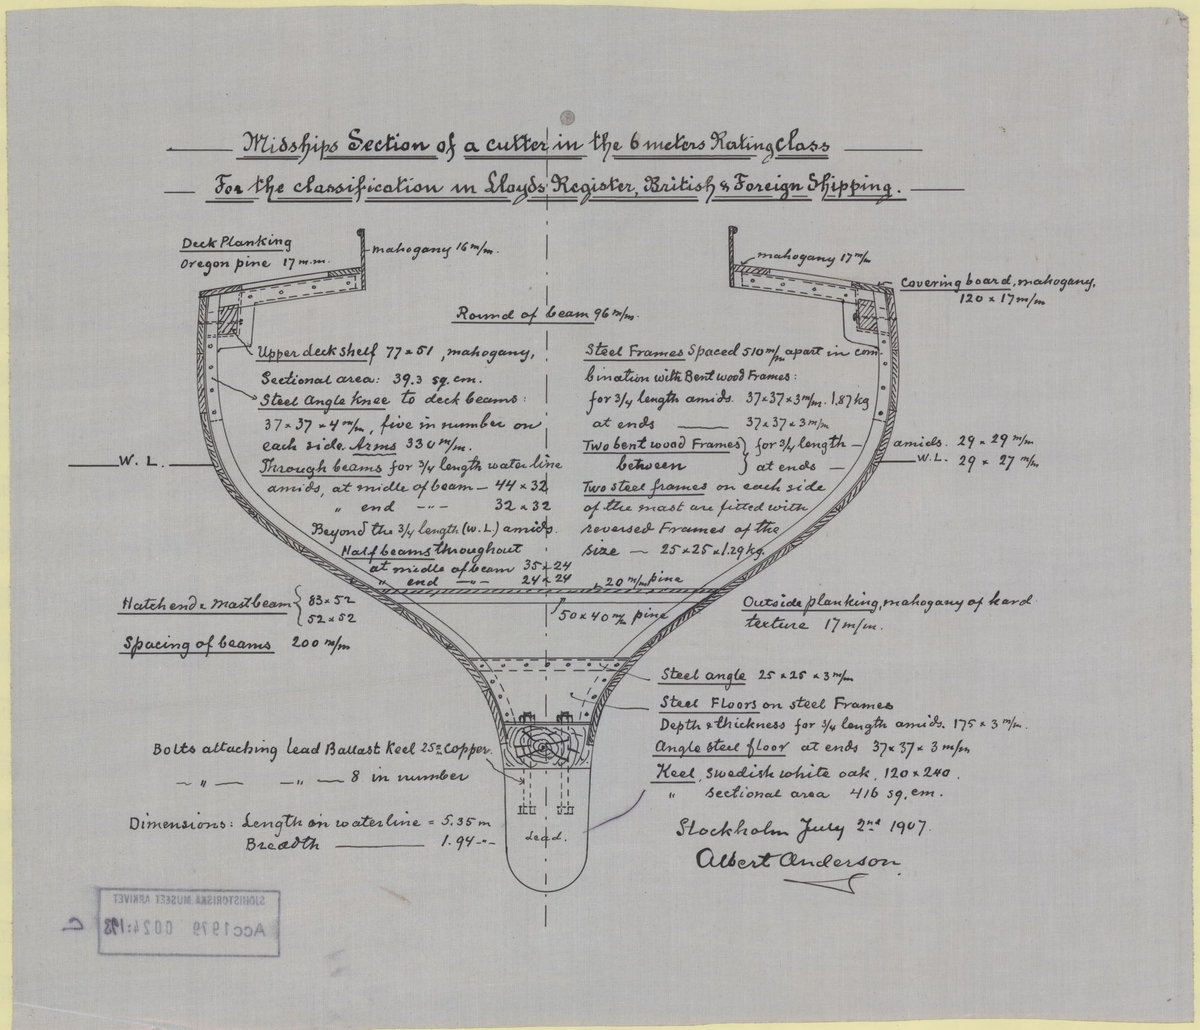 Midships Section of a cutter in the 6 meters Rating Class
For the classification in Lloyds Register, British & Foreign Shipping.
Deck Planking
Oregon pine 17 m.m.
mahogany 16 m/m.
mahogany 17 m/m
Covering board, mahogany,
120 x 17 m/m
Round of beam 96 m/m.
Upper deck shelf 77 x 51, mahogany,
Sectional area: 39.3 sq. cm.
Steel Angle Knee to deck beams:
37 x 37 x 4 m/m, five in number on
each side. Arms 330 m/m.
Through beams for 3/4 length water line
amids, at midle of beam — 44 x 32
„ end -„- 32 x 32
Beyond the 3/4 length (W.L.) amids.
Half beams throughout
at midle of beam 35 x 24
„ end -„- 24 x 24
Steel Frames Spaced 510 m/m apart in com-
bination with Bent wood Frames:
for 3/4 length amids. 37 x 37 x 3 m/m. 1.87 kg
at ends — 37 x 37 x 3 m/m
Two bent wood Frames } for 3/4 length — amids. 29 x 29 m/m
between } at ends — 29 x 27 m/m
W.L.
W.L.
Two steel frames on each side
of the mast are fitted with
reversed Frames of the
size — 25 x 25 x 1.29 kg.
20 m/m pine
50 x 40 m/m pine
Hatchend & Mastbeam { 83 x 52
52 x 52
Spacing of beams 200 m/m
Outside planking, mahogany of hard
texture 17 m/m.
Steel angle 25 x 25 x 3 m/m
Steel Floors on steel Frames
Depth & thickness for 3/4 length amids. 175 x 3 m/m.
Angle steel floor at ends 37 x 37 x 3 m/m
Keel, Swedish white oak, 120 x 240.
„ sectional area 416 sq. cm.
Bolts attaching lead Ballast Keel 25 m/m copper.
— „ — -„- — 8 in number
Dimensions: Length on waterline = 5,35 m
Breadth — 1.94 -„-
Lead.
Stockholm July 2nd 1907.
Albert Anderson.
SJÖHISTORISKA MUSEET ARKIVET
Acc 1979 0024:173
C